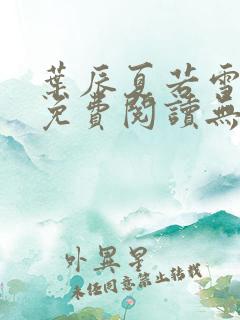 葉辰夏若雪
免費閱讀無
外異星
未經同意禁止轉載